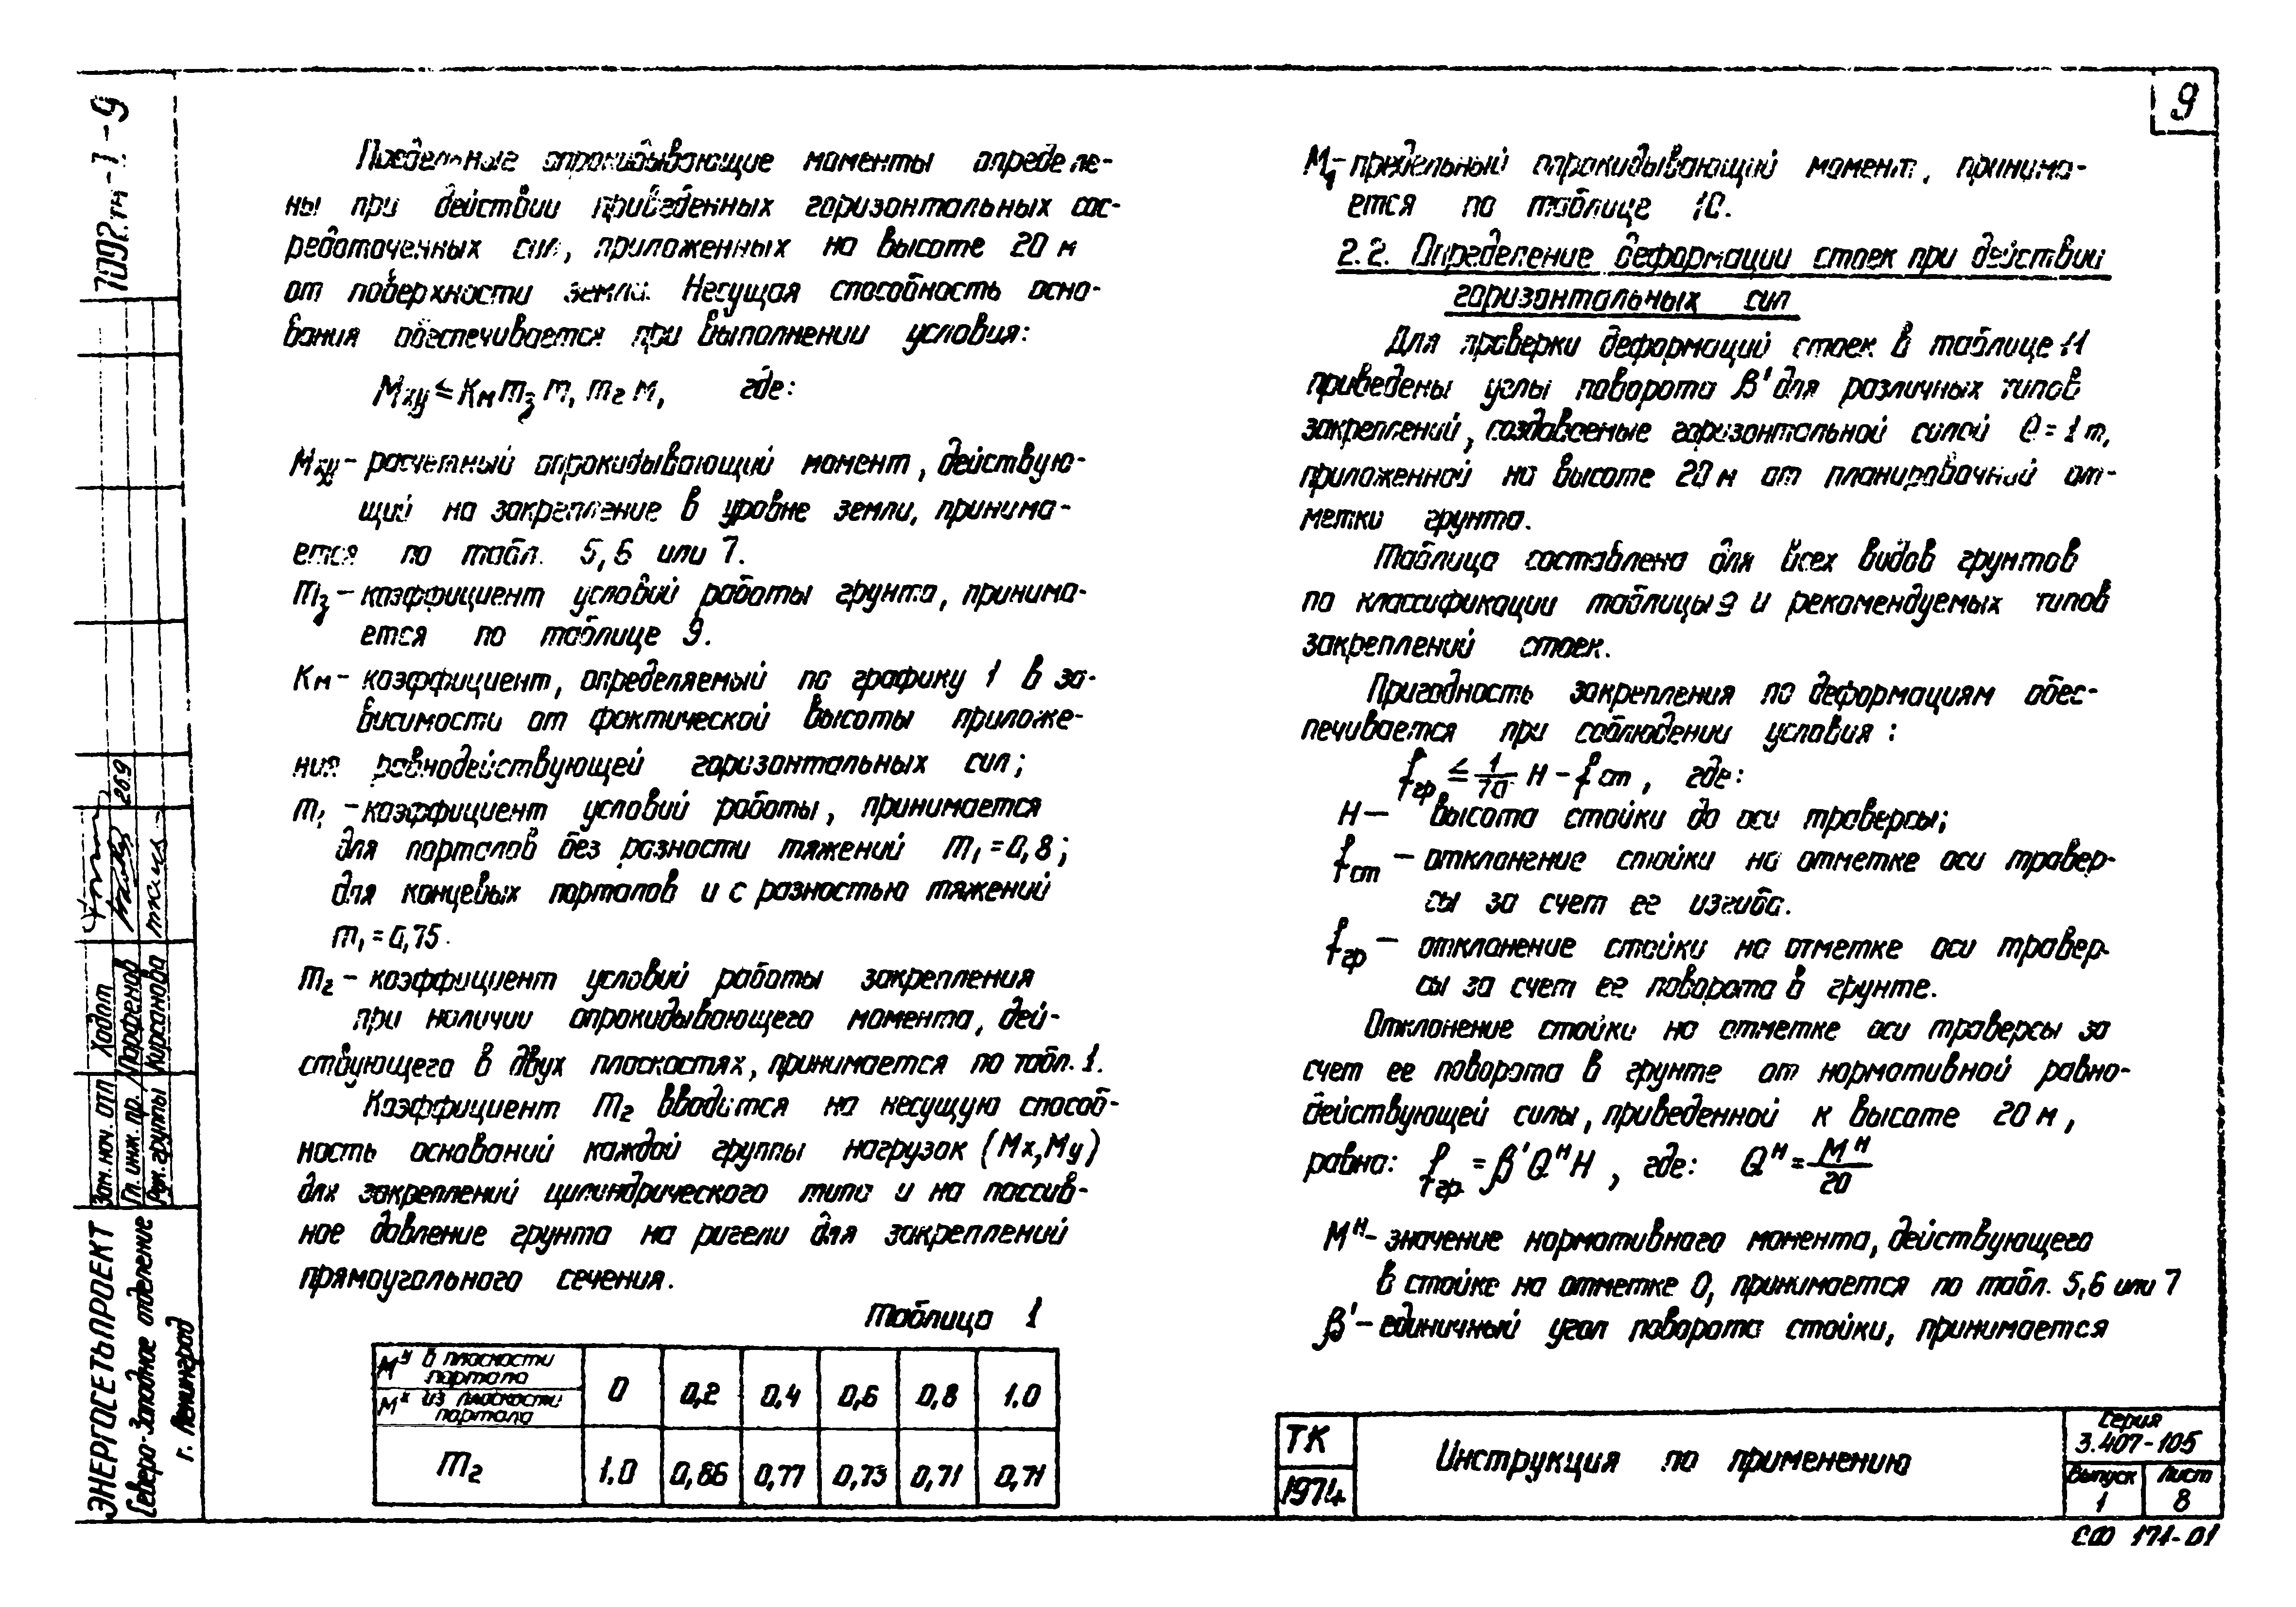 9
Предельные опрокидывающие моменты определе-
ны при действии приведенных горизонтальных сос-
редоточенных сил, приложенных на высоте 20 м
от поверхности земли. Несущая способность осно-
вания обеспечивается при выполнении условия:
Mxy ≤ Kм m3 m1 m2 M1 где:
Mxy - расчетный опрокидывающий момент, действую-
щий на закрепление в уровне земли, принима-
ется по табл. 5,6 или 7.
m3 - коэффициент условий работы грунта, принима-
ется по таблице 9.
Kм - коэффициент, определяемый по графику 1 в за-
висимости от фактической высоты приложе-
ния равнодействующей горизонтальных сил;
m1 - коэффициент условий работы, принимается
для порталов без разности тяжений m1 = 0,8;
для концевых порталов и с разностью тяжений
m1 = 0,75.
m2 - коэффициент условий работы закрепления
при наличии опрокидывающего момента, дей-
ствующего в двух плоскостях, принимается по табл. 1.
Коэффициент m2 вводится на несущую способ-
ность оснований каждой группы нагрузок (Mx, My)
для закреплений цилиндрического типа и на пассив-
ное давление грунта на ригели для закреплений
прямоугольного сечения.
Таблица 1
Mу в плоскости портала
Mх из плоскости портала
0 0,2 0,4 0,6 0,8 1.0
m2 1.0 0,86 0,77 0,73 0,71 0,71
M1 - предельный опрокидывающий момент, принима-
ется по таблице 10.
2.2. Определение деформации стоек при действии
горизонтальных сил
Для проверки деформаций стоек в таблице 11
приведены углы поворота β' для различных типов
закреплений, создаваемые горизонтальной силой Q = 1 т,
приложенной на высоте 20 м от планировочной от-
метки грунта.
Таблица составлена для всех видов грунтов
по классификации таблицы 9 и рекомендуемых типов
закреплений стоек.
Пригодность закрепления по деформациям обес-
печивается при соблюдении условия:
fгр ≤ 1/70 H - fст, где:
H — высота стойки до оси траверсы;
fст - отклонение стойки на отметке оси травер-
сы за счет ее изгиба.
fгр - отклонение стойки на отметке оси травер-
сы за счет ее поворота в грунте.
Отклонение стойки на отметке оси траверсы за
счет ее поворота в грунте от нормативной равно-
действующей силы, приведенной к высоте 20 м,
равно: fгр. = β' Qн H, где: Qн = Mн/20
Mн - значение нормативного момента, действующего
в стойке на отметке 0, принимается по табл. 5,6 или 7
β' - единичный угол поворота стойки, принимается
ТК
1974
Инструкция по применению
Серия
3.407-105
Выпуск
1
Лист
8
СФ 171-01
7007тм-1-9
Зам. нач. отп Ходот
Гл. инж. пр. Парфенов
Рук. группы Кирсанова
ЭНЕРГОСЕТЬПРОЕКТ
Северо-Западное отделение
г. Ленинград